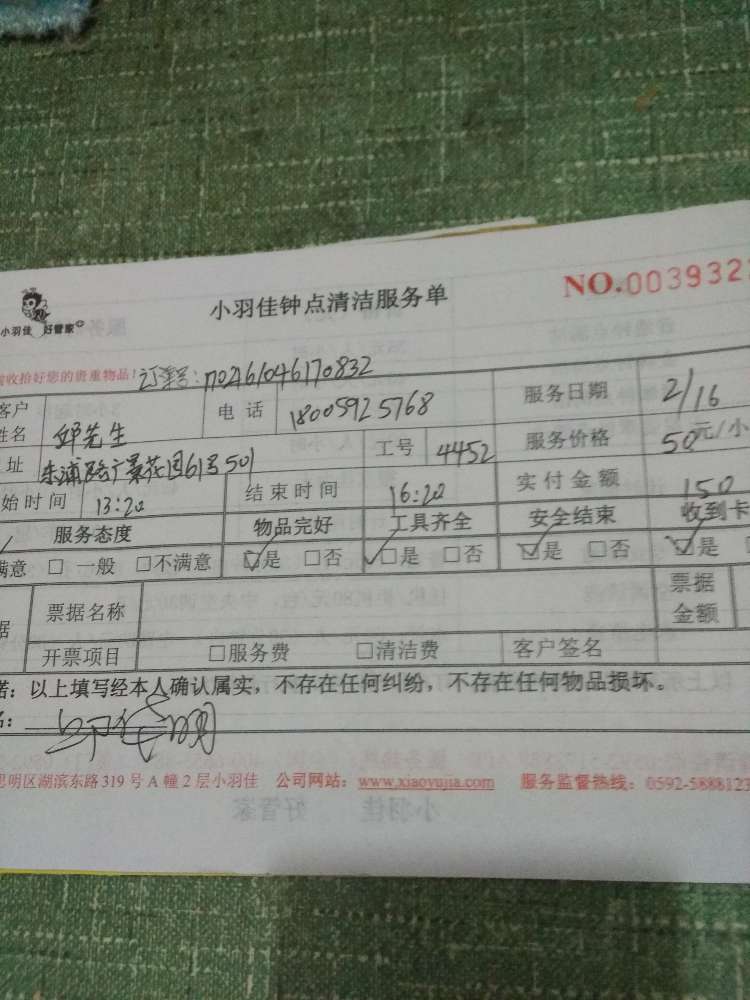 小羽佳 好管家
小羽佳钟点清洁服务单
NO.003932
收拾好您的贵重物品! 订单号: 1702161046170832
客户姓名 邱先生 电话 18005925768 服务日期 2/16
址 东浦路广景花园61号501 工号 4452 服务价格 50元/小
始时间 13:20 结束时间 16:20 实付金额 150
服务态度 物品完好 工具齐全 安全结束 收到卡
满意 □ 一般 □不满意 ☑是 □否 ☑是 □否 ☑是 □否 ☑是
据 票据名称 票据金额
开票项目 □服务费 □清洁费 客户签名
诺：以上填写经本人确认属实，不存在任何纠纷，不存在任何物品损坏。
名：
思明区湖滨东路319号A幢2层小羽佳 公司网站：www.xiaoyujia.com 服务监督热线：0592-5888123